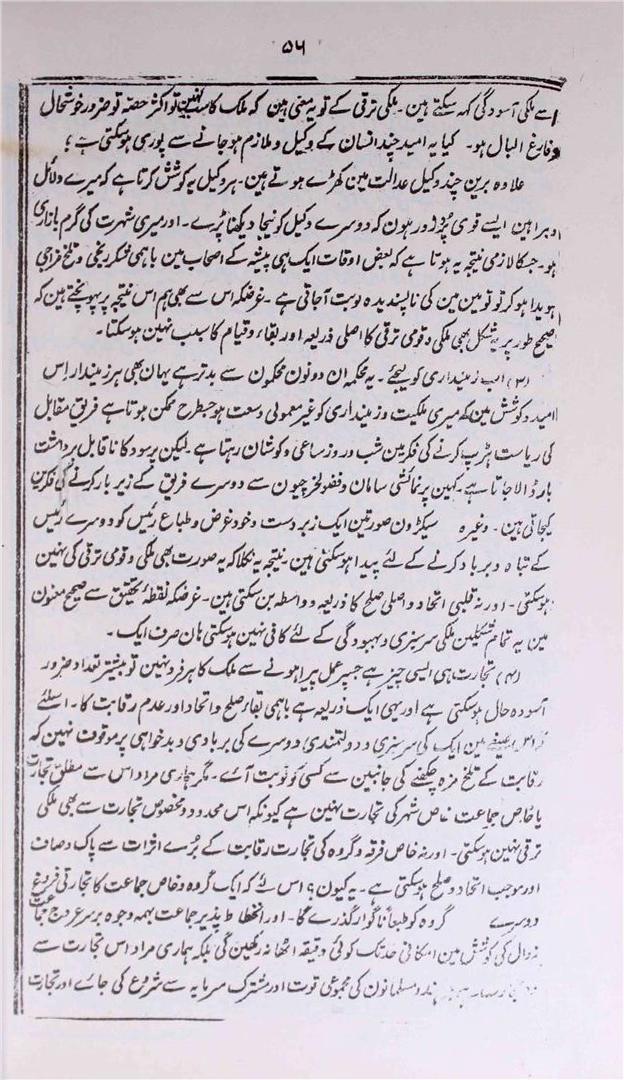 ۵۶
اسے ملکی آسودگی کہہ سکتے ہین۔ ملکی ترقی کے تو یہ معنی ہین کہ ملک کا سب نہین تو اکثر حصہ تو ضرور خوشحال
و فارغ البال ہو۔ کیا یہ امید چند انسان کے وکیل و ملازم ہو جانے سے پوری ہو سکتی ہے؛
علاوہ برین چند وکیل عدالت مین کھڑے ہوتے ہین۔ ہر وکیل یہ کوشش کرتا ہے کہ میرے دلائل
و براہین ایسے قوی پُر زور ہون کہ دوسرے وکیل کو نیچا دیکھنا پڑے۔ اور میری شہرت کی گرم بازاری
ہو۔ جسکا لازمی نتیجہ یہ ہوتا ہے کہ بعض اوقات ایک ہی پیشہ کے اصحاب مین باہمی شکر رنجی و تلخ مزاجی
ہویدا ہو کر تو تو مین مین کی ناپسندیدہ نوبت آجاتی ہے۔ غرضکہ اس سے بھی ہم اس نتیجہ پر پہونچتے ہین کہ
صحیح طور پر یہ شکل بھی ملکی و قومی ترقی کا اصلی ذریعہ اور بقاء و قیام کا سبب نہین ہو سکتا۔
(۳) اب زمینداری کو لیجئے۔ یہ محکمہ ان دونون محکمون سے بدتر ہے یہان بھی ہر زمیندار اس
امید و کوشش مین کہ میری ملکیت و زمینداری کو غیر معمولی وسعت ہو جسطرح ممکن ہوتا ہے فریق مقابل
کی ریاست ہڑپ کرنے کی فکر مین شب و روز ساعی و کوشان رہتا ہے۔ لیکن پر سود کا ناقابل برداشت
بار ڈالا جاتا ہے۔ کہین پر نمائشی سامان و فضولخرچیون سے دوسرے فریق کے زیر بار کرنے کی فکرین
کیجاتی ہین۔ وغیرہ سیکڑون صورتین ایک زبردست و خود غرض و طباع رئیس کو دوسرے رئیس
کے تباہ و برباد کرنے کے لئے پیدا ہو سکتی ہین۔ نتیجہ یہ نکلا کہ یہ صورت بھی ملکی و قومی ترقی کی نہین
ہو سکتی۔ اور نہ قلبی اتحاد و اصلی صلح کا ذریعہ و واسطہ بن سکتی ہین۔ غرضکہ نقطۂ تحقیق سے صحیح معنون
مین یہ تمام شکلین ملکی سرسبزی و بہبودگی کے لئے کافی نہین ہو سکتی ہان صرف ایک۔
(۴) تجارت ہی ایسی چیز ہے جسپر عمل پیرا ہونے سے ملک کا ہر فرد نہین تو بیشتر تعداد ضرور
آسودہ حال ہو سکتی ہے اور یہی ایک ذریعہ ہے باہمی بقاء صلح و اتحاد اور عدم رقابت کا۔ اسلئے
مین ایک کی سرسبزی و دولتمندی دوسرے کی بربادی و بدخواہی پر موقوف نہین کہ
رقابت کے تلخ مزہ چکھنے کی جانبین سے کسی کو نوبت آئے۔ مگر ہماری مراد اس سے مطلق تجارت
یا خاص جماعت خاص شہر کی تجارت نہین ہے کیونکہ اس محدود و مخصوص تجارت سے بھی ملکی
ترقی نہین ہو سکتی۔ اور نہ خاص فرقہ و گروہ کی تجارت رقابت کے بُرے اثرات سے پاک و صاف
اور موجب اتحاد و صلح ہو سکتی ہے۔ یہ کیون؟ اس لئے کہ ایک گروہ و خاص جماعت کا تجارتی فروغ
دوسرے گروہ کو طبعاً ناگوار گذرے گا۔ اور انحطاط پذیر جماعت بہمہ وجوہ بر سر عروج جماعت
زوال کی کوشش مین امکانی حد تک کوئی دقیقہ اٹھا نہ رکھین گی بلکہ ہماری مراد اس تجارت سے
ہندو مسلمانون کی مجموعی قوت اور مشترک سرمایہ سے شروع کی جائے اور تجارت